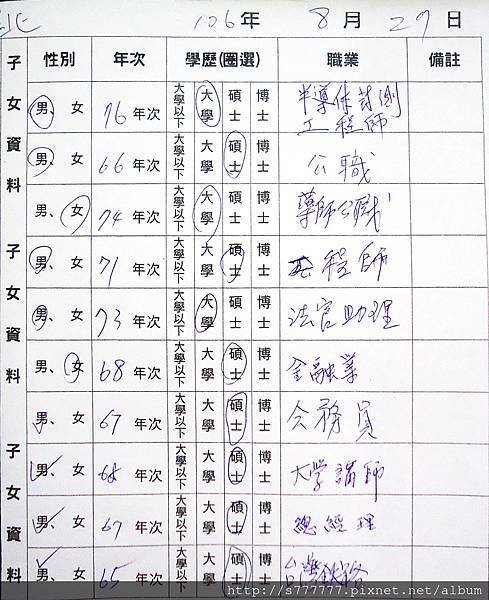 北 106年 8月 29日
子女資料 子女資料 子女資料
性別 年次 學歷(圈選) 職業 備註
男、女 76年次 大學以下 大學 碩士 博士 半導体封測工程師
男、女 66年次 大學以下 大學 碩士 博士 公職
男、女 74年次 大學以下 大學 碩士 博士 藥師公職
男、女 71年次 大學以下 大學 碩士 博士 工程師
男、女 73年次 大學以下 大學 碩士 博士 法官助理
男、女 68年次 大學以下 大學 碩士 博士 金融業
男、女 67年次 大學以下 大學 碩士 博士 公務員
男、女 年次 大學以下 大學 碩士 博士 大學講師
男、女 67年次 大學以下 大學 碩士 博士 總經理
男、女 65年次 大學以下 大學 碩士 博士 台灣鉄路
http://s777777.pixnet.net/album